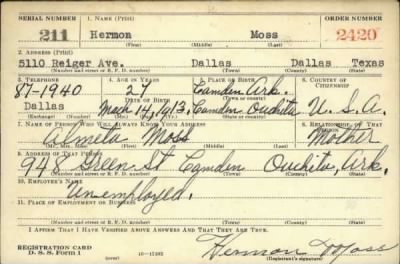 SERIAL NUMBER 1. NAME (Print) ORDER NUMBER
211 Hermon Moss 2420
(First) (Middle) (Last)
2. ADDRESS (Print)
5110 Reiger Ave. Dallas Dallas Texas
(Number and street or R. F. D. number) (Town) (County) (State)
3. TELEPHONE 4. AGE IN YEARS 5. PLACE OF BIRTH 6. COUNTRY OF CITIZENSHIP
87-1940 27 Camden Ark.
DATE OF BIRTH
Dallas March 14, 1913. Camden Ouchita U. S. A.
7. NAME OF PERSON WHO WILL ALWAYS KNOW YOUR ADDRESS 8. RELATIONSHIP OF THAT PERSON
Moss Mother
(First) (Middle) (Last)
9. ADDRESS OF THAT PERSON
948 Green St Camden Ouchita, Ark.
(Number and street or R. F. D. number) (Town) (County) (State)
10. EMPLOYER'S NAME
Unemployed.
11. PLACE OF EMPLOYMENT OR BUSINESS
(Number and street or R. F. D. number) (Town) (County) (State)
I AFFIRM THAT I HAVE VERIFIED ABOVE ANSWERS AND THAT THEY ARE TRUE.
REGISTRATION CARD
D. S. S. Form 1 Hermon Moss
(Registrant's signature)